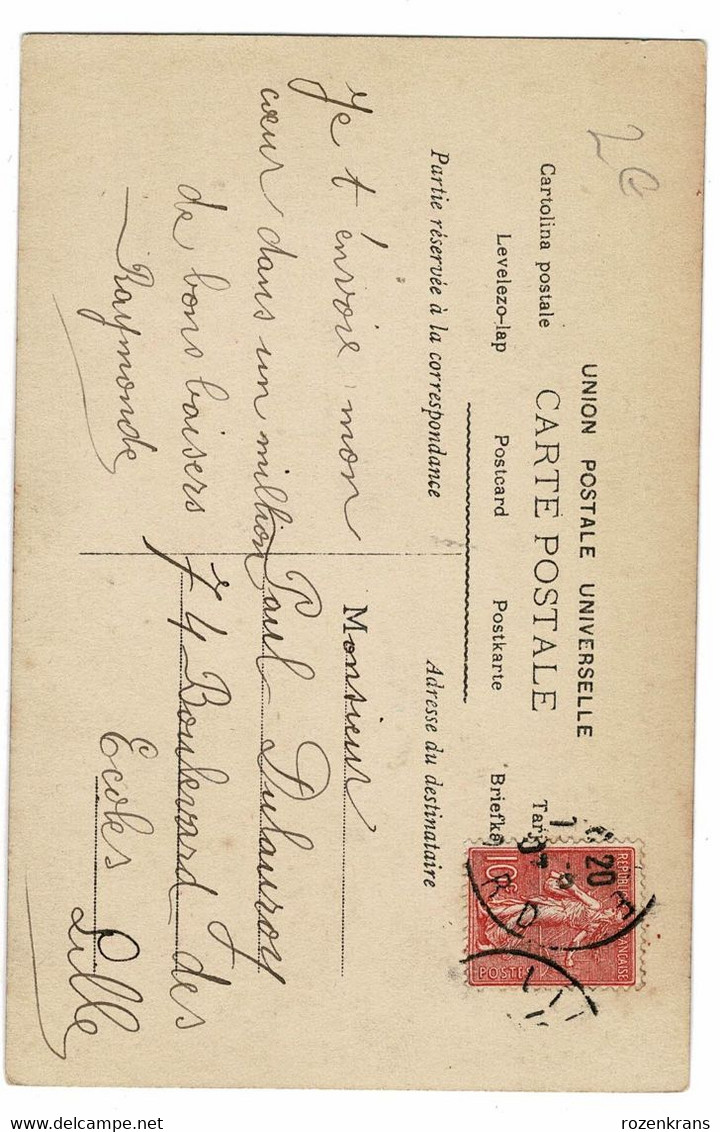 2€
UNION POSTALE UNIVERSELLE
CARTE POSTALE
Cartolina postale
Levelezo-lap Postcard Postkarte
Partie réservée à la correspondance
Adresse du destinataire
Je t'envoie mon
cœur dans un million
de bons baisers
Raymonde
Monsieur
Paul Dulauroy
74 Boulevard des
Ecoles
Lille
REPUBLIQUE FRANÇAISE
10c
POSTES
20
Delcampe.net
rozenkrans